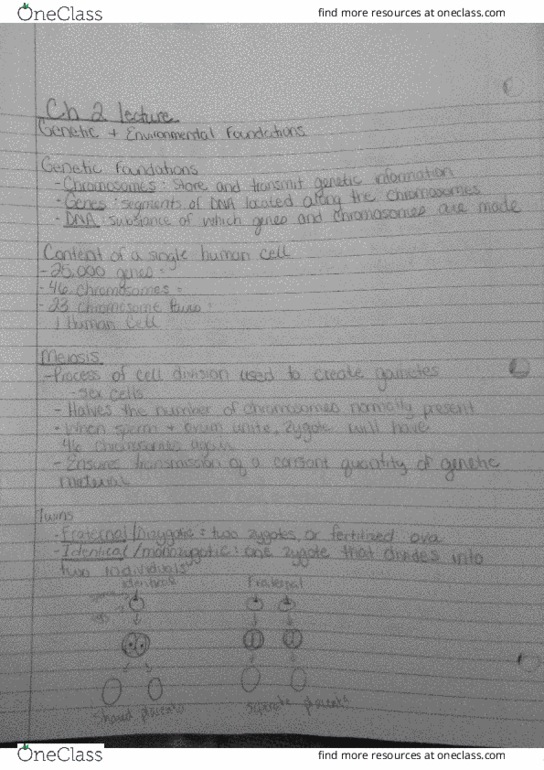 OneClass
find more resources at oneclass.com
Ch 2 lecture
Genetic + Environmental Foundations
Genetic Foundations
- Chromosomes: store and transmit genetic information
- Genes: segments of DNA located along the chromosomes
- DNA: substance of which genes and chromosomes are made
Content of a single human cell
- 25,000 genes =
- 46 chromosomes =
- 23 chromosome =
1 Human Cell
Meiosis
- Process of cell division used to create gametes
- sex cells
- Halves the number of chromosomes normally present
- When sperm + ovum unite, zygote will have
46 chromosomes again
- Ensures transmission of a constant quantity of genetic
material
Twins
- Fraternal/Dizygotic: two zygotes, or fertilized ova
- Identical/monozygotic: one zygote that divides into
two individuals
Identical Fraternal
Shared placenta Separate placenta
OneClass
find more resources at oneclass.com